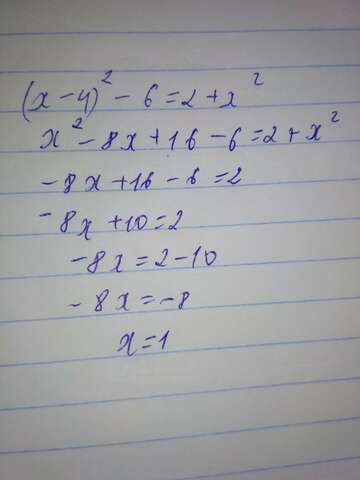 (x-4)² - 6 = 2 + x²
x² - 8x + 16 - 6 = 2 + x²
-8x + 16 - 6 = 2
-8x + 10 = 2
-8x = 2 - 10
-8x = -8
x = 1